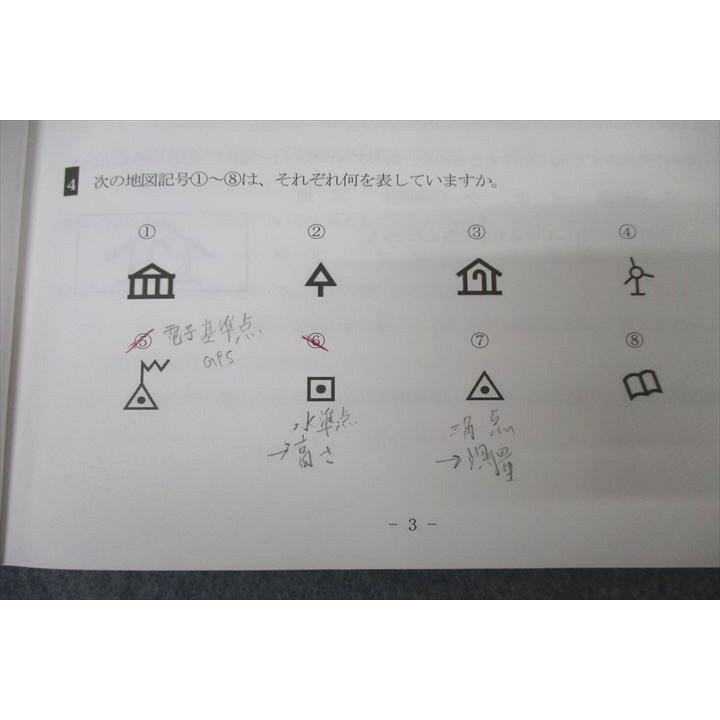 4 次の地図記号①～⑧は、それぞれ何を表していますか。
① ② ③ ④
⑤ 電子基準点 ⑥ ⑦ ⑧
GPS
水準点 三角点
→高さ →測量
－ 3 －